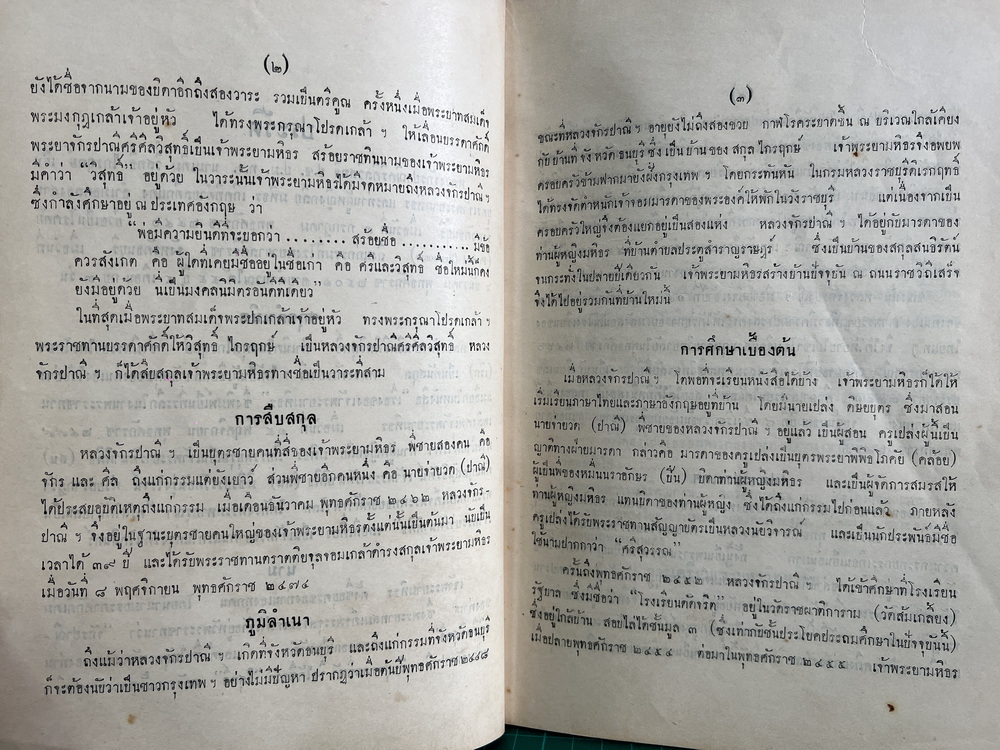 (๒)
ยังได้ชื่อจากนามของบิดาอีกถึงสองวาระ รวมเป็นตรีคูณ ครั้งหนึ่งเมื่อพระบาทสมเด็จ
พระมงกุฎเกล้าเจ้าอยู่หัว ได้ทรงพระกรุณาโปรดเกล้า ฯ ให้เลื่อนบรรดาศักดิ์
พระยาจักรปาณีศรีศีลวิสุทธิ์เป็นเจ้าพระยามหิธร สร้อยราชทินนามของเจ้าพระยามหิธร
มีคำว่า “วิสุทธิ์” อยู่ด้วย ในวาระนั้นเจ้าพระยามหิธรได้มีจดหมายถึงหลวงจักรปาณี ฯ
ซึ่งกำลังศึกษาอยู่ ณ ประเทศอังกฤษ ว่า
“พ่อมีความยินดีที่จะบอกว่า ........ สร้อยชื่อ .......... มีข้อ
ควรสังเกต คือ ผู้ใดที่เคยมีชื่ออยู่ในชื่อเก่า คือ ศรีและวิสุทธิ์ ชื่อใหม่นี้ก็คง
ยังมีอยู่ด้วย นี่เป็นมงคลนิมิตรอันดีทีเดียว”
ในที่สุดเมื่อพระบาทสมเด็จพระปกเกล้าเจ้าอยู่หัว ทรงพระกรุณาโปรดเกล้า ฯ
พระราชทานบรรดาศักดิ์ให้วิสุทธิ์ ไกรฤกษ์ เป็นหลวงจักรปาณีศรีศีลวิสุทธิ์ หลวง
จักรปาณี ฯ ก็ได้สืบสกุลเจ้าพระยามหิธรทางชื่อเป็นวาระที่สาม
การสืบสกุล
หลวงจักรปาณี ฯ เป็นบุตรชายคนที่สี่ของเจ้าพระยามหิธร พี่ชายสองคน คือ
จักร และ ศีล ถึงแก่กรรมแต่ยังเยาว์ ส่วนพี่ชายอีกคนหนึ่ง คือ นายจ่ายวด (ปาณี)
ได้ประสบอุบัติเหตุถึงแก่กรรม เมื่อเดือนธันวาคม พุทธศักราช ๒๔๖๒ หลวงจักร-
ปาณี ฯ จึงอยู่ในฐานะบุตรชายคนใหญ่ของเจ้าพระยามหิธรตั้งแต่นั้นเป็นต้นมา นับเป็น
เวลาได้ ๓๙ ปี และได้รับพระราชทานตราตติยจุลจอมเกล้าดำรงสกุลเจ้าพระยามหิธร
เมื่อวันที่ ๘ พฤศจิกายน พุทธศักราช ๒๔๗๔
ภูมิลำเนา
ถึงแม้ว่าหลวงจักรปาณี ฯ เกิดที่จังหวัดธนบุรี และถึงแก่กรรมที่จังหวัดธนบุรี
ก็จะต้องนับว่าเป็นชาวกรุงเทพ ฯ อย่างไม่มีปัญหา ปรากฏว่าเมื่อต้นปีพุทธศักราช ๒๔๔๘
(๓)
ขณะที่หลวงจักรปาณี ฯ อายุยังไม่ถึงสองขวบ กาฬโรคระบาดขึ้น ณ บริเวณใกล้เคียง
กับบ้านที่จังหวัดธนบุรีซึ่งเป็นบ้านของสกุลไกรฤกษ์ เจ้าพระยามหิธรจึงอพยพ
ครอบครัวข้ามฟากมายังฝั่งกรุงเทพ ฯ โดยกระทันหัน ในกรมหลวงราชบุรีดิเรกฤทธิ์
ได้ทรงจัดตำหนักเจ้าจอมมารดาของพระองค์ให้พักในวังราชบุรี แต่เนื่องจากเป็น
ครอบครัวใหญ่จึงต้องแยกอยู่เป็นสองแห่ง หลวงจักรปาณี ฯ ได้อยู่กับมารดาของ
ท่านผู้หญิงมหิธร ที่บ้านตำบลประตูสำราญราษฎร์ ซึ่งเป็นบ้านของสกุลสนธิรัตน์
จนกระทั่งในปลายปีเดียวกัน เจ้าพระยามหิธรสร้างบ้านปัจจุบัน ณ ถนนราชวิถีเสร็จ
จึงได้ไปอยู่รวมกันที่บ้านใหม่นี้
การศึกษาเบื้องต้น
เมื่อหลวงจักรปาณี ฯ โตพอที่จะเรียนหนังสือได้บ้าง เจ้าพระยามหิธรก็ได้ให้
เริ่มเรียนภาษาไทยและภาษาอังกฤษอยู่ที่บ้าน โดยมีนายเปล่ง ดิษยบุตร ซึ่งมาสอน
นายจ่ายวด (ปาณี) พี่ชายของหลวงจักรปาณี ฯ อยู่แล้ว เป็นผู้สอน ครูเปล่งผู้นี้เป็น
ญาติทางฝ่ายมารดา กล่าวคือ มารดาของครูเปล่งเป็นบุตรพระยาพิพิธโภคัย (คล้อย)
ผู้เป็นพี่ของหมื่นนราอักษร (ปั่น) บิดาท่านผู้หญิงมหิธร และเป็นผู้จัดการสมรสให้
ท่านผู้หญิงมหิธร แทนบิดาของท่านผู้หญิง ซึ่งได้ถึงแก่กรรมไปก่อนแล้ว ภายหลัง
ครูเปล่งได้รับพระราชทานสัญญาบัตรเป็นหลวงนัยวิจารณ์ และเป็นนักประพันธ์มีชื่อ
ใช้นามปากกาว่า “ศรีสุวรรณ”
ครั้นถึงพุทธศักราช ๒๔๕๒ หลวงจักรปาณี ฯ ได้เข้าศึกษาที่โรงเรียน
รัฐบาล ซึ่งมีชื่อว่า “โรงเรียนดัดจริต” อยู่ในวัดราชผาติการาม (วัดส้มเกลี้ยง)
ซึ่งอยู่ใกล้บ้าน สอบไล่ได้ชั้นมูล ๓ (ซึ่งเท่ากับชั้นประโยคประถมศึกษาในปัจจุบันนี้)
เมื่อปลายพุทธศักราช ๒๔๕๔ ต่อมาในพุทธศักราช ๒๔๕๕ เจ้าพระยามหิธร